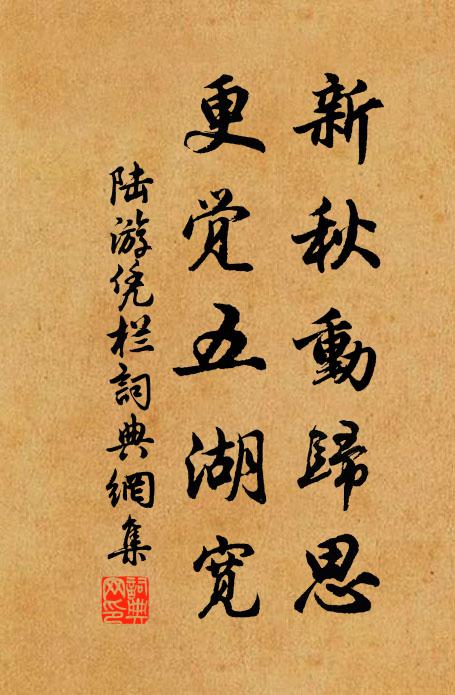 新秋動歸思
更觉五湖寬
陆游凭栏詞典網集
詞典網印